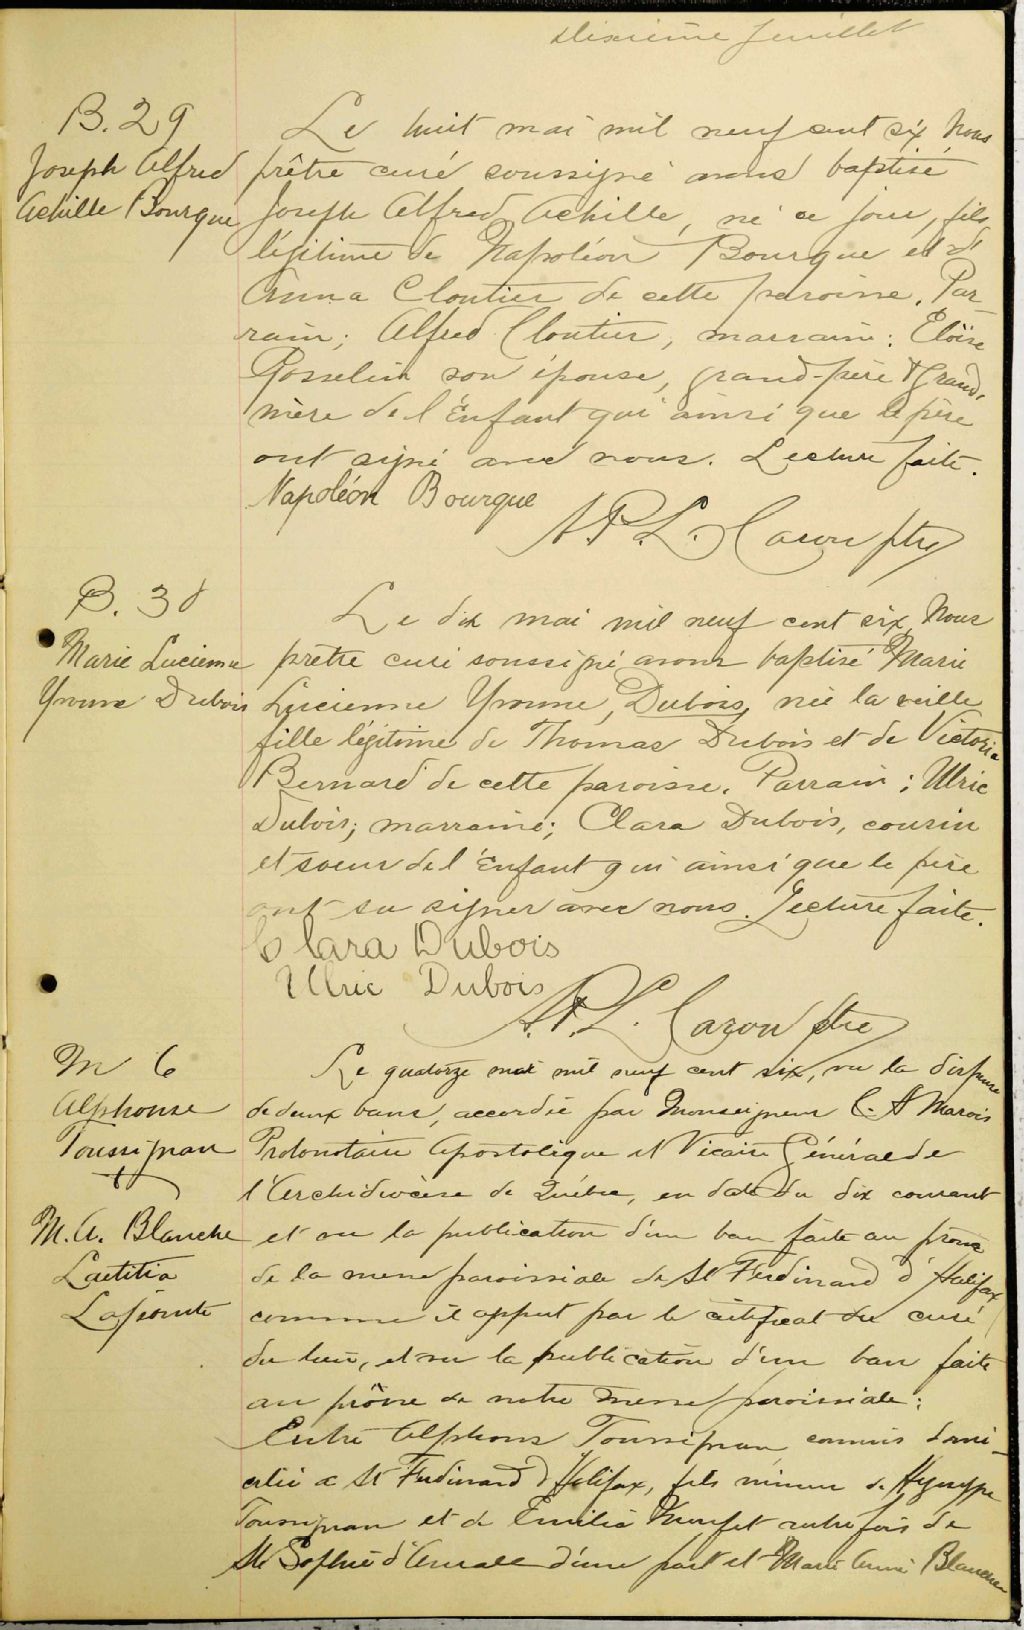 Dixième feuillet
B. 29
Joseph Alfred
Achille Bourque
Le huit mai mil neuf cent six Nous
prêtre curé soussigné avons baptisé
Joseph Alfred Achille, né ce jour, fils
légitime de Napoléon Bourque et d'
Anna Cloutier de cette paroisse. Par-
rain; Alfred Cloutier, marraine: Eloïse
Gosselin son épouse, grand-père & grand,
mère de l'Enfant qui ainsi que le père
ont signé avec nous. Lecture faite.
Napoléon Bourque
A.P.L. Caron ptre
B. 30
Marie Lucienne
Yvonne Dubois
Le dix mai mil neuf cent six, Nous
prêtre curé soussigné avons baptisé Marie
Lucienne Yvonne, Dubois, née la veille
fille légitime de Thomas Dubois et de Victoria
Bernard de cette paroisse. Parrain; Ulric
Dubois; marraine; Clara Dubois, cousin
et soeur de l'Enfant qui ainsi que le père
ont su signer avec nous. Lecture faite.
Clara Dubois
Ulric Dubois
A.P.L. Caron ptre
M 6
Alphonse
Toussignan
&
M. A. Blanche
Laetitia
Lapointe
Le quatorze mai mil neuf cent six, vu la dispense
de deux bans, accordée par Monseigneur C. A Marois
Protonotaire Apostolique et Vicaire Général de
l'Archidiocèse de Québec, en date du dix courant
et vu la publication d'un ban faite au prône
de la messe paroissiale de St Ferdinand d'Halifax
comme il appert par le certificat du curé
du lieu, et vu la publication d'un ban faite
au prône de notre messe paroissiale:
Entre Alphonse Toussignan, commis domi-
cilié à St Ferdinand d'Halifax, fils mineur de
Toussignan et de Emilie autrefois de
Ste Sophie d'une part et Marie Anne Blanche